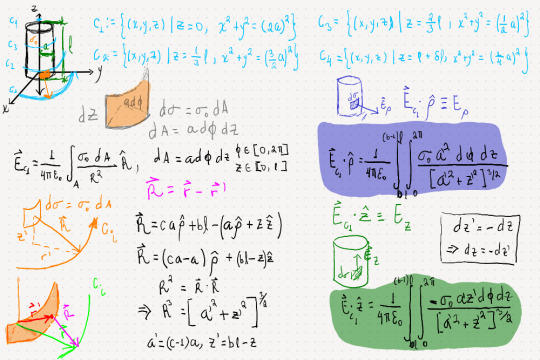 C₁ := {(x,y,z) | z=0, x²+y²=(2a)²}
C₂ := {(x,y,z) | z=⅓l, x²+y²=(3/2 a)²}
C₃ = {(x,y,z) | z=⅔l, x²+y²=(½a)²}
C₄ = {(x,y,z) | z=l+δl, x²+y²=(¼a)²}
z
l
a
y
x
dz
adϕ
dσ = σ₀ dA
dA = adϕdz
E⃗_{C₁} = 1/4πε₀ ∫_A σ₀ dA/R² R̂, dA = adϕdz ϕ∈[0,2π]
z∈[0,l]
R⃗ = r⃗ - r⃗'
dσ = σ₀dA
R⃗
z'
r'
R⃗ = caρ̂ + bl - (aρ̂ + zẑ)
R⃗ = (ca-a)ρ̂ + (bl-z)ẑ
R² = R⃗·R⃗
⇒ R³ = [a'² + z'²]^{3/2}
a' = (c-1)a, z' = bl-z
r⃗'
R⃗
C_i
dσ
E⃗_ρ
E⃗_{C₁}·ρ̂ ≡ E_ρ
E⃗_{C₁}·ρ̂ = 1/4πε₀ ∫_{bl}^{(b-1)l} ∫_0^{2π} σ₀a² dϕ dz/[a'² + z'²]^{3/2}
E⃗_{C₁}·ẑ ≡ E_z
E⃗_z
dσ
dz' = -dz
⇒ dz = -dz'
E⃗_{C₁}·ẑ = 1/4πε₀ ∫_{bl}^{(b-1)l} ∫_0^{2π} -σ₀ az'dϕdz/[a'² + z'²]^{3/2}